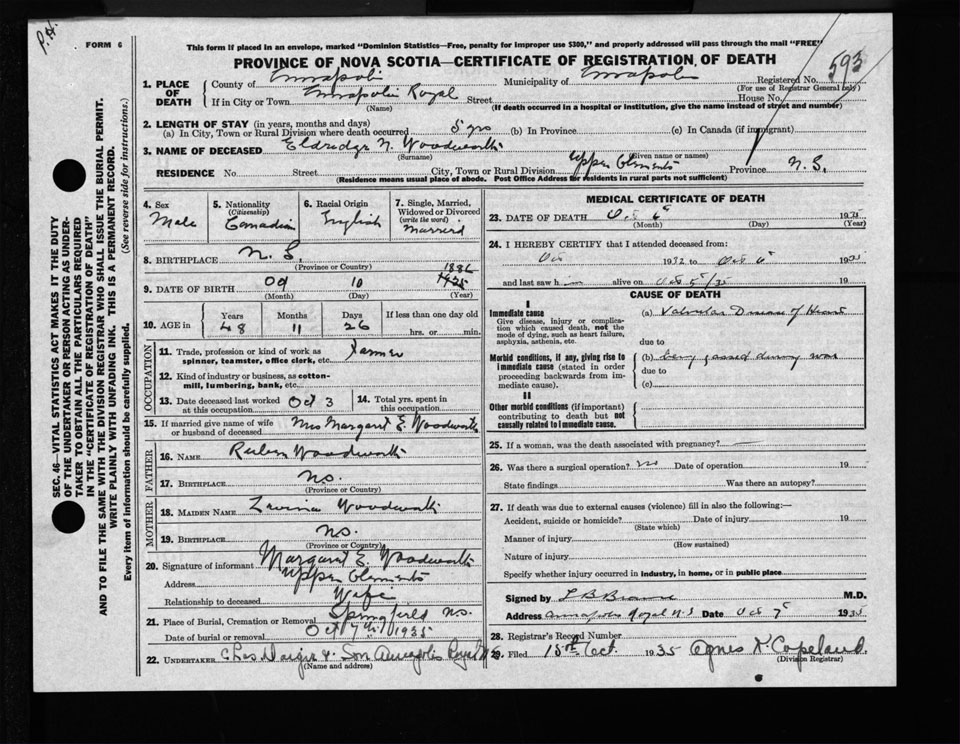 P.H.
FORM 6
This form if placed in an envelope, marked "Dominion Statistics—Free, penalty for improper use $300," and properly addressed will pass through the mail "FREE"
PROVINCE OF NOVA SCOTIA—CERTIFICATE OF REGISTRATION OF DEATH
593
1. PLACE OF DEATH
County of Annapolis Municipality of Annapolis Registered No.
(For use of Registrar General only)
If in City or Town Annapolis Royal Street House No.
(Name) (If death occurred in a hospital or institution, give the name instead of street and number)
2. LENGTH OF STAY (in years, months and days)
(a) In City, Town or Rural Division where death occurred 5 yrs (b) In Province (c) In Canada (if immigrant)
3. NAME OF DECEASED Eldridge N. Woodworth
(Surname) (Given name or names)
RESIDENCE No. Street City, Town or Rural Division Upper Clements Province N.S.
(Residence means usual place of abode. Post Office Address for residents in rural parts not sufficient)
SEC. 46—VITAL STATISTICS ACT MAKES IT THE DUTY
OF THE UNDERTAKER OR PERSON ACTING AS UNDER-
TAKER TO OBTAIN ALL THE PARTICULARS REQUIRED
IN THE "CERTIFICATE OF REGISTRATION OF DEATH"
AND TO FILE THE SAME WITH THE DIVISION REGISTRAR WHO SHALL ISSUE THE BURIAL PERMIT.
WRITE PLAINLY WITH UNFADING INK. THIS IS A PERMANENT RECORD.
Every item of information should be carefully supplied. (See reverse side for instructions.)
4. Sex
Male
5. Nationality
(Citizenship)
Canadian
6. Racial Origin
English
7. Single, Married,
Widowed or Divorced
(write the word)
Married
8. BIRTHPLACE N.S.
(Province or Country)
1886
9. DATE OF BIRTH 09 10
(Month) (Day) (Year)
10. AGE in
Years Months Days If less than one day old
48 11 26 hrs. or min.
OCCUPATION
11. Trade, profession or kind of work as
spinner, teamster, office clerk, etc. Farmer
12. Kind of industry or business, as cotton-
mill, lumbering, bank, etc.
13. Date deceased last worked
at this occupation Oct 3
14. Total yrs. spent in
this occupation
15. If married give name of wife
or husband of deceased Mrs Margaret E. Woodworth
FATHER
16. NAME Reuben Woodworth
17. BIRTHPLACE N.S.
(Province or Country)
MOTHER
18. MAIDEN NAME Lavinia Woodworth
19. BIRTHPLACE N.S.
(Province or Country)
20. Signature of informant Margaret E. Woodworth
Address Upper Clements
Relationship to deceased Wife
21. Place of Burial, Cremation or Removal Springfield N.S.
Date of burial or removal Oct 7th 1935
22. UNDERTAKER Chas & Son Annapolis Royal N.S.
(Name and address)
MEDICAL CERTIFICATE OF DEATH
23. DATE OF DEATH Oct 6th 1935
(Month) (Day) (Year)
24. I HEREBY CERTIFY that I attended deceased from:
Oct 1932 to Oct 6th 1935
and last saw h alive on Oct 5th/35 19
CAUSE OF DEATH
I
Immediate cause
Give disease, injury or complica-
tion which caused death, not the
mode of dying, such as heart failure,
asphyxia, asthenia, etc.
(a) Valvular Disease of Heart
due to
Morbid conditions, if any, giving rise to
immediate cause (stated in order
proceeding backwards from im-
mediate cause).
(b) being gassed during war
due to
(c)
II
Other morbid conditions (if important)
contributing to death but not
causally related to immediate cause.
25. If a woman, was the death associated with pregnancy?
26. Was there a surgical operation? no Date of operation 19
State findings Was there an autopsy?
27. If death was due to external causes (violence) fill in also the following:—
Accident, suicide or homicide? Date of injury 19
(State which)
Manner of injury
(How sustained)
Nature of injury
Specify whether injury occurred in industry, in home, or in public place
Signed by L B Braine M.D.
Address Annapolis Royal N.S Date Oct 7th 1935
28. Registrar's Record Number
29. Filed 15th Oct. 1935 Agnes K. Copeland
(Division Registrar)